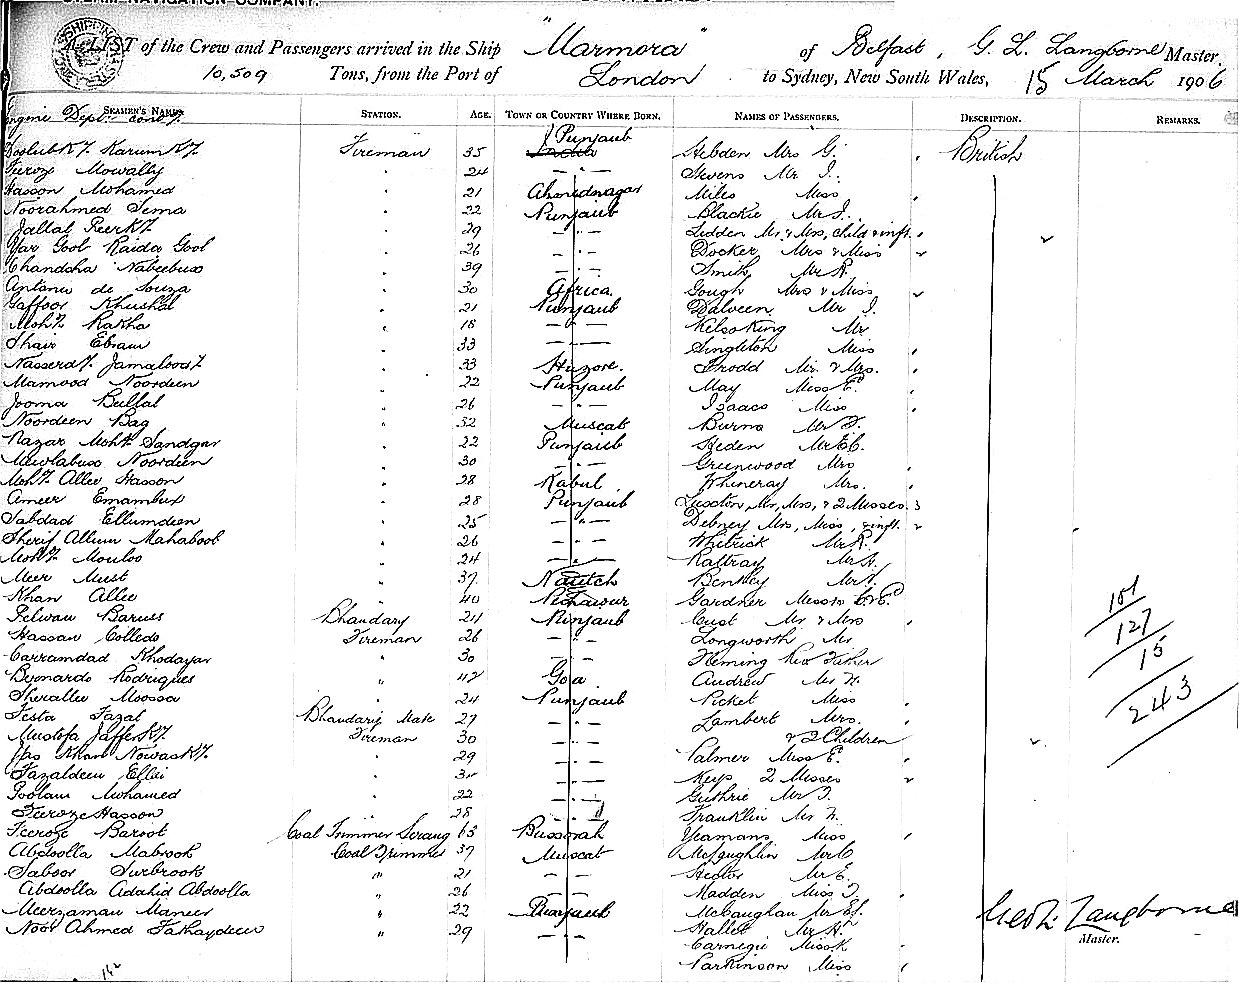 STEAM NAVIGATION COMPANY.
A LIST of the Crew and Passengers arrived in the Ship "Marmora" of Belfast, G. L. Langborne Master.
10,509 Tons, from the Port of London to Sydney, New South Wales, 15 March 1906
SEAMEN'S NAMES. STATION. AGE. TOWN OR COUNTRY WHERE BORN. NAMES OF PASSENGERS. DESCRIPTION. REMARKS.
Engine Dept: cont'd.
Fireman 35 Punjaub Hebden Mrs G. British
Feroz Mowally 24 Stevens Mr J.
Hasson Mohamed 21 Ahmednagar Miles Miss
Noorahmed Sema 22 Punjaub Blackie Mr J.
Jallal 29 - " - Ludden Mr & Mrs, child & inft.
Yar Gool Raida Gool 26 - " - Docker Mrs & Miss
Chandcha Nabeebux 39 - " - Smith Mr R.
Antonio de Souza 30 Africa. Gough Mrs & Miss
Gaffoor Khushal 21 Punjaub Dalveen Mr J.
Mohd. Rakha 18 - " - Kelso King Mr
Shair Ebram 33 - " - Singleton Miss
Nasserd. Jamalood. 33 Hazore. Trodd Mr. & Mrs.
Mamood Noordeen 22 Punjaub May Miss E.
Jooma Bullal 26 - " - Isaacs Miss
Noordeen Bag 32 Muscat Burns Mr
Nazar Mohd. Sandgar 22 Punjaub Heden Mr
Mewlabux Noordeen 30 - " - Greenwood Mrs
Mohd. Allee Hasson 28 Kabul Mrs.
Ameer Emambux 28 Punjaub Luxton, Mr, Mrs, & 2 Misses. 3
Sabdad Ellumdeen 25 - " - Debney Mrs, Miss, & inft.
Sherif Allum Mahaboob 26 - " - Whitrick Mr R.
Mohd. Mouloo 24 - " - Raltray Mr A.
Meer Must 37 Nautch Bentley Mr
Khan Allee 40 Peshawur Gardner Misses
Pelwan Barues Bhandary 24 Punjaub Cust Mr & Mrs
Hassan Colledo Fireman 26 - " - Longworth Mr
Carramdad Khodayar 30 - " - Fleming Rev Father
Bernardo Rodrigues " 42 Goa Andrew Mr
Sherallee Moossa 24 Punjaub Picket Miss
Festa Fazal Bhandary Mate 27 - " - Lambert Mrs.
Mustafa Fireman 30 - " - & 2 Children
Khan 29 - " - Palmer Miss E.
Fazaldeen Ellei - " - Keys 2 Misses
Goolam Mohamed 22 - " - Guthrie Mr
Feeroze Hasson 28 - " - Franklin Mr
Feeroze Baroot Coal Trimmer Serang Bussorah Yeamans Miss
Abdoolla Mabrook Coal Trimmer 37 Muscat McLoughlin Mr
Saboor Surbrook " 21 - " - Hector Mr E.
Abdoolla Adahid Abdoolla " 26 - " - Madden Miss
Meerzaman Maneer " 22 Punjaub McGaughan Mr
Noor Ahmed " 29 - " - Hallet Mr H.
Carnegie Miss K
Parkinson Miss
101
127
15
243
Geo L. Langborne
Master.
142